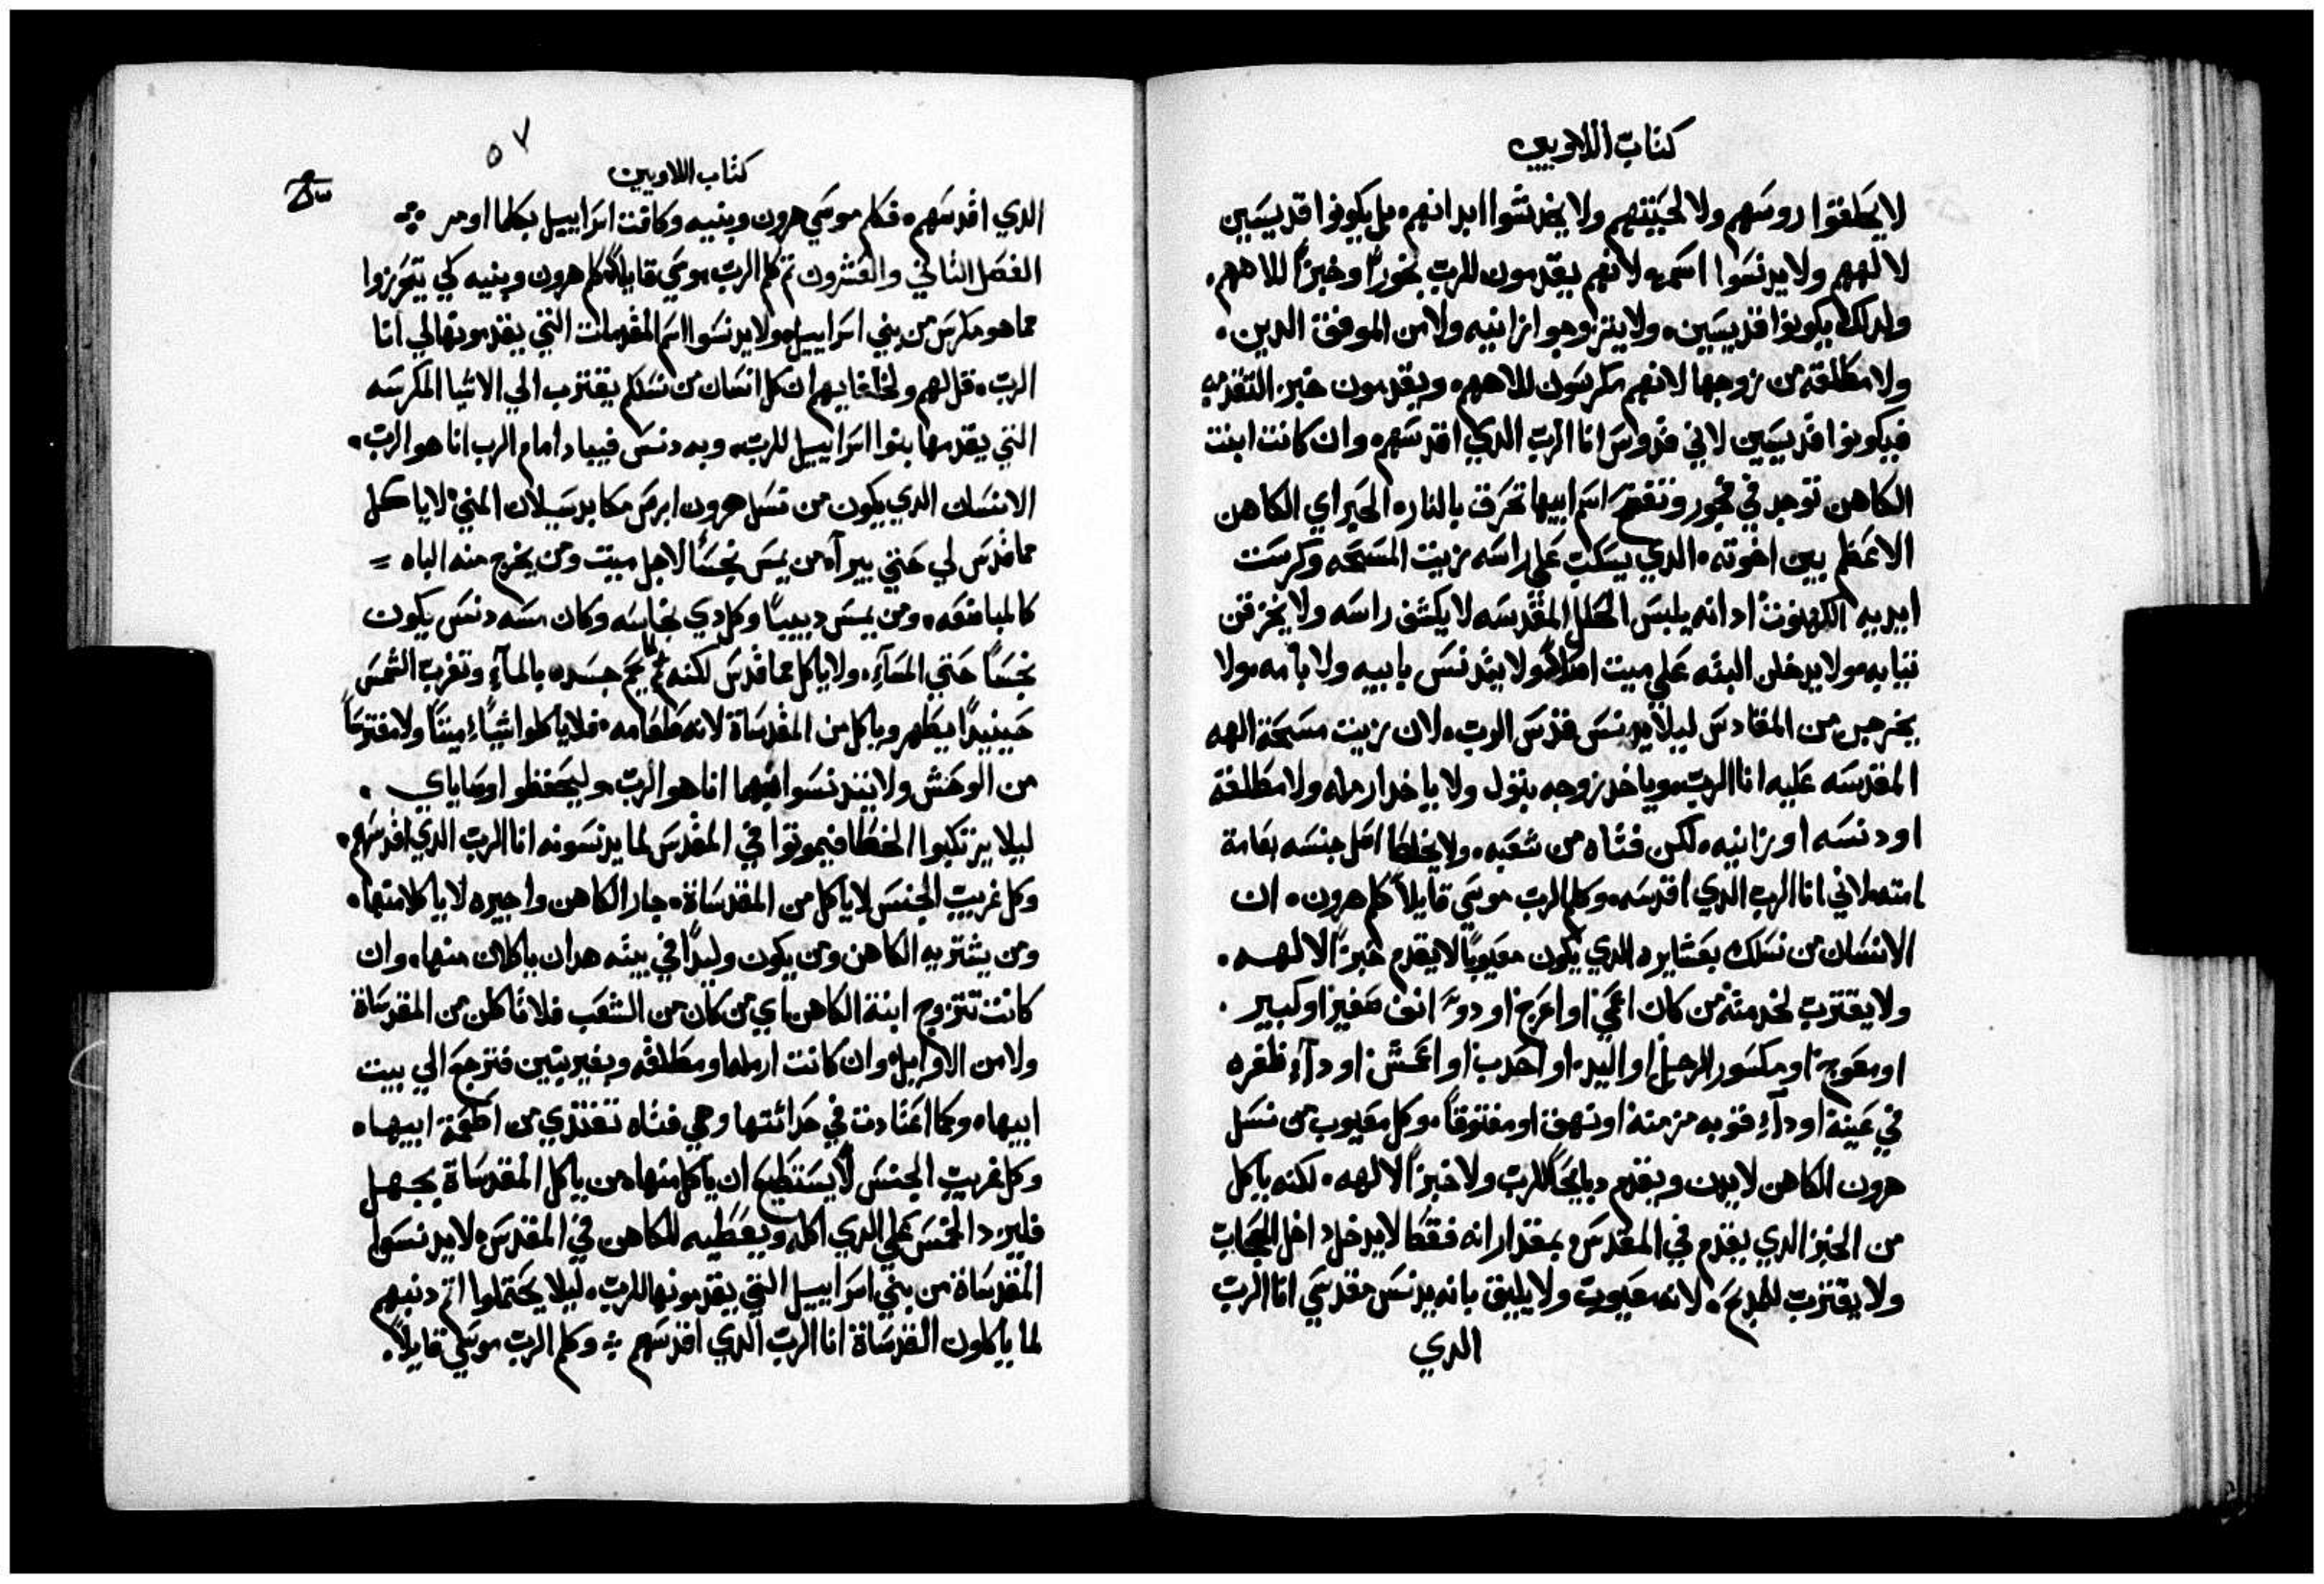 كتاب اللاويين
لا يحلقوا روسهم ولا لحيتهم ولا يخدشوا ابدانهم بل يكونوا قديسين
لالههم ولا يدنسوا اسمه لانهم يقدمون للرب بخوراً وخبزاً للاههم
ولدلك يكونوا قديسين ولا يتزوجوا زانيه ولا من الموقف الدين
ولا مطلقه من زوجها لانهم مكرسون للاههم ويقدمون خبز التقدمه
فيكونوا قديسين لاني قدوس انا الرب الدي اقدسهم وان كانت ابنت
الكاهن توجد في فجور وتفضح اسم ابيها تحرق بالنار الحبر اي الكاهن
الاعظم بين اخوته الدي يسكب علي راسه زيت المسحه وكرست
ايديه الكهنوت اد انه يلبس الحلل المقدسه لا يكشف راسه ولا يخرقن
تيابه ولا يدخلن البته علي ميت اصلاً ولا يتدنس بابيه ولا بامه ولا
يخرجن من المقادس ليلا يدنس قدس الرب لان زيت مسحة الهه
المقدسه عليه انا الرب وياخد زوجه بتول ولا ياخد ارمله ولا مطلقة
او دنسه او زانيه لكن فتاه من شعبه ولا يخلط اصل جنسه بعامة
امته لاني انا الرب الدي اقدسه وكلم الرب موسي قايلاً كلم هرون ان
الانسان من نسلك بعشايره الدي يكون معيوباً لا يقدم خبزاً لالهه
ولا يقترب لخدمته من كان اعمي او اعرج او دو انف صغير او كبير
او معوج او مكسور الرجل او اليد او احدب او اعمش او دآء ظفره
في عينه او دآء قوبه مزمنه او نهق او مفتوقاً وكل معيوب من نسل
هرون الكاهن لا يدن ويقدم دبايحاً للرب ولا خبزاً لالهه لكنه ياكل
من الخبز الدي يقدم في المقدس بمقدار انه فقط لا يدخل داخل الحجاب
ولا يقترب للمدبح لانه معيوب ولا يليق بانه يدنس مقدسي انا الرب
الدي
٥٧
كتاب اللاويين
الدي اقدسهم فكلم موسي هرون وبنيه وكافت اسراييل بكلما اومر
الفصل التاني والعشرون تم كلم الرب موسي قايلاً كلم هرون وبنيه كي يتحرزوا
مما هو مكرس من بني اسراييل ولا يدنسوا اسم المقدمات التي يقدمونها لي انا
الرب قل لهم ولخلفايهم ان كل انسان من نسلكم يقترب الي الاشيا المكرسه
التي يقدمها بنوا اسراييل للرب وبه دنس فيباد امام الرب انا هو الرب
الانسان الدي يكون من نسل هرون ابرص مكابد سيلان المني لا ياكل
مما قدس لي حتي يبرآ من يمس نجساً لاجل ميت ومن يخرج منه الباه
كالمباضعه ومن يمس دبيباً وكل دي نجاسه وكان مسه دنس يكون
نجساً حتي المسآء ولا ياكل مما قدس لكنه جسده بالمآء وتغرب الشمس
حينيداً يطهر وياكل من المقدساة لانه طعامه فلا ياكلوا شيآء ميتاً ولا مفترساً
من الوحش ولا يتدنسوا انا هو الرب وليحفظوا اوصاياي
ليلا يرتكبوا الخطا فيموتوا في المقدس لما يدنسونه انا الرب الدي اقدسهم
وكل غريب الجنس لا ياكل من المقدساة جار الكاهن واجيره لا ياكلا منها
ومن يشتريه الكاهن ومن يكون وليداً في بيته هدان ياكلان منها وان
كانت تتزوج ابنة الكاهن باي من كان من الشعب فلا تاكلن من المقدساة
ولا من الاوايل وان كانت ارمله او مطلقه وبغير بنين فترجع الي بيت
ابيها وكما اعتادت في حداثتها وهي فتاه تغتدي من اطعمة ابيها
وكل غريب الجنس لا يستطيع ان ياكل منها من ياكل المقدساة بجهل
فليزد الخمس علي الدي اكله ويعطيه للكاهن في المقدس لا يدنسوا
المقدساة من بني اسراييل التي يقدمونها للرب ليلا يحتملوا اتم دنبهم
لما ياكلون المقدساة انا الرب الدي اقدسهم وكلم الرب موسي قايلاً